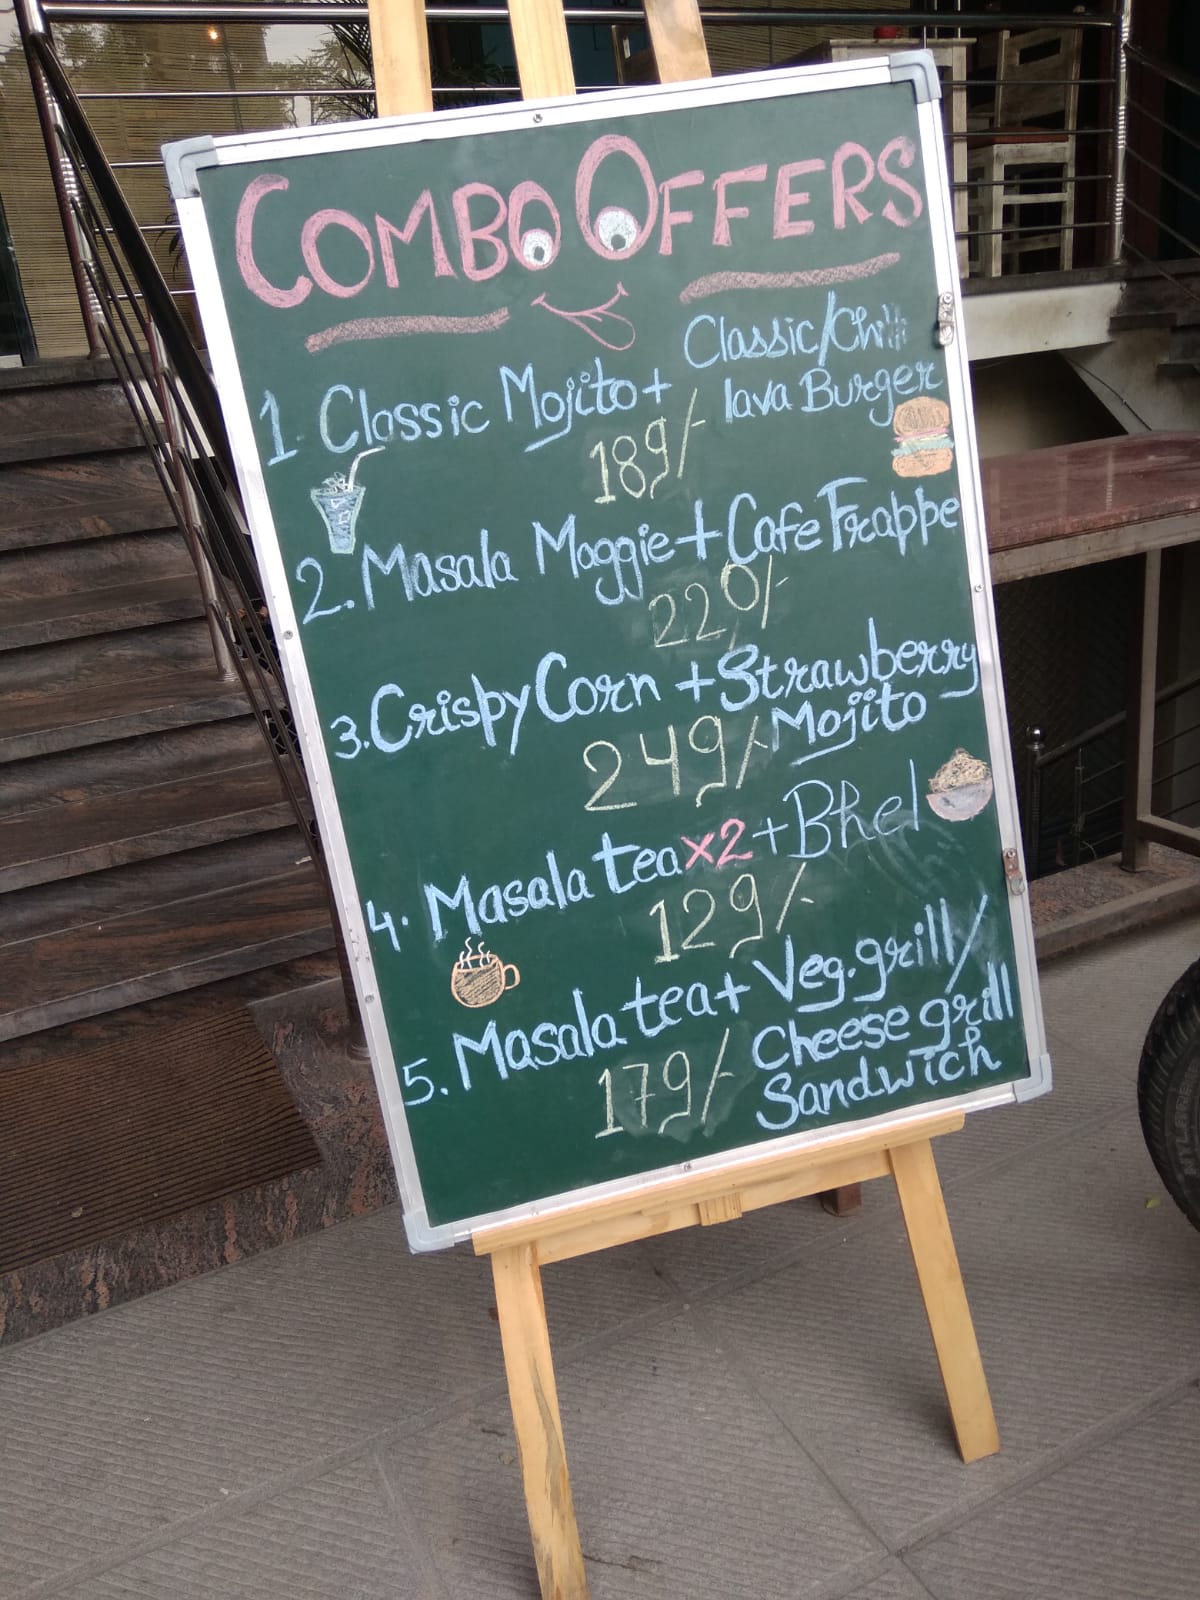 COMBO OFFERS
1. Classic Mojito + Classic/Chilli
lava Burger
189/-
2. Masala Maggie + Cafe Frappe
220/-
3. Crispy Corn + Strawberry
Mojito
249/-
4. Masala tea x2 + Bhel
129/-
5. Masala tea + Veg. grill/
Cheese grill
Sandwich
179/-